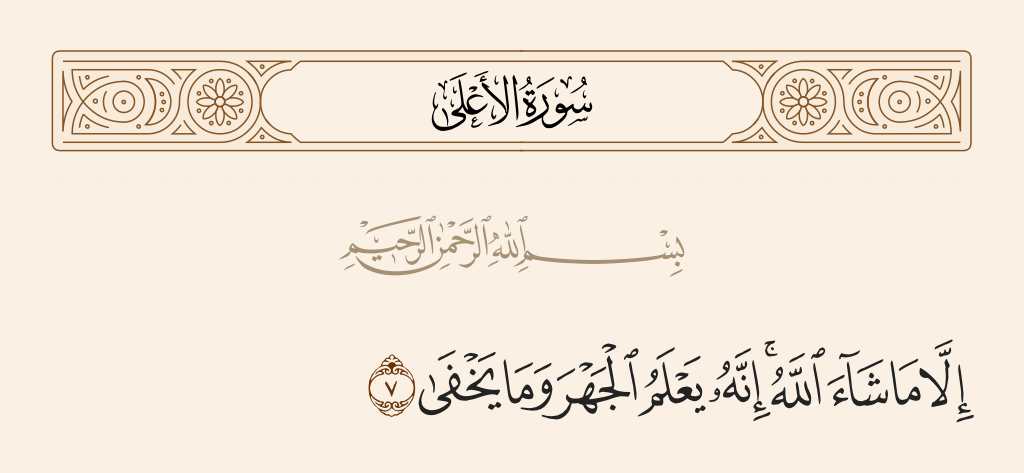 سُورَةُ الأَعْلَىٰ
بِسْمِ ٱللَّهِ ٱلرَّحْمَٰنِ ٱلرَّحِيمِ
إِلَّا مَا شَآءَ ٱللَّهُ ۚ إِنَّهُۥ يَعْلَمُ ٱلْجَهْرَ وَمَا يَخْفَىٰ ٧